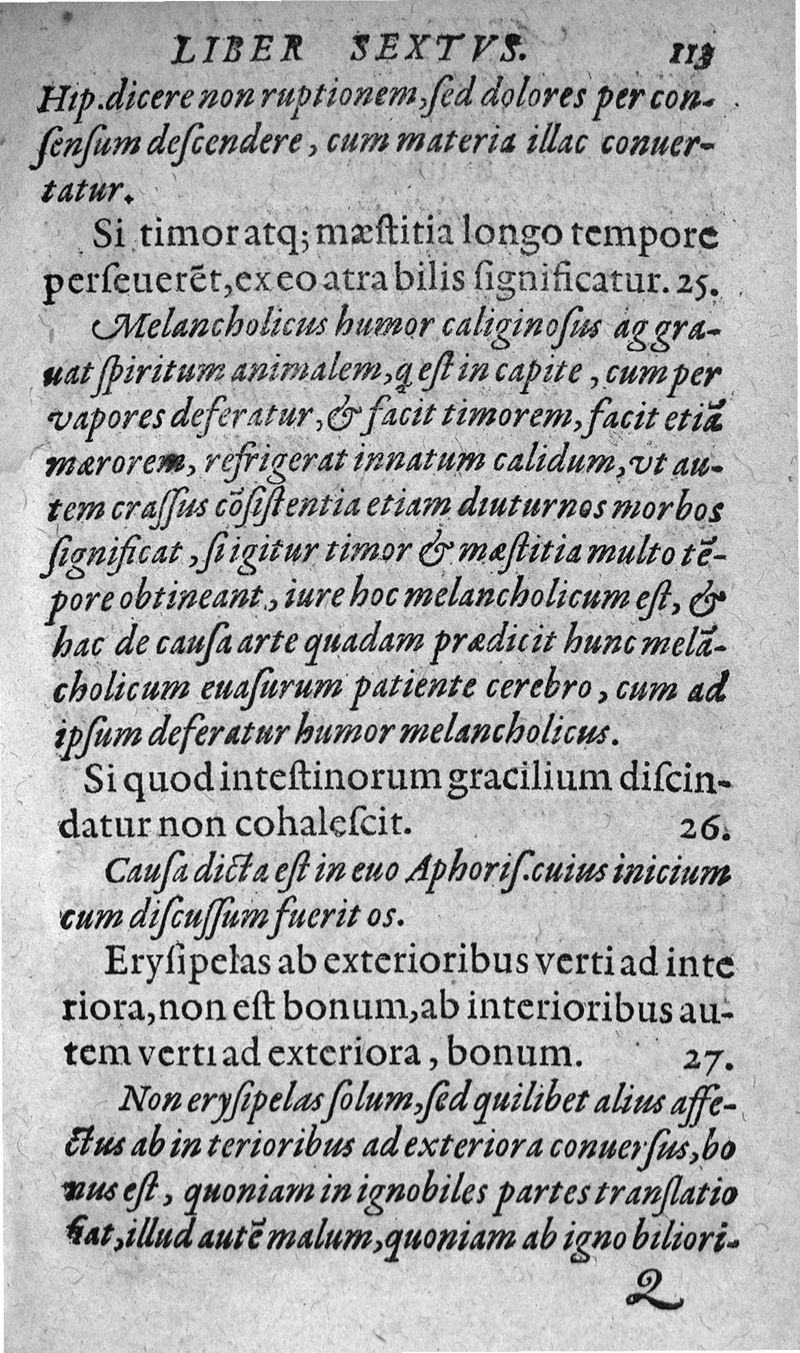 LIBER SEXTVS. 113
Hip.dicere non ruptionem,ſed dolores per con-
ſenſum deſcendere, cum materia illac conuer-
tatur.
Si timor atq; mæſtitia longo tempore
perſeuerēt,ex eo atra bilis ſignificatur. 25.
Melancholicus humor caliginoſus aggra-
uat ſpiritum animalem,q̨ eſt in capite, cum per
vapores deferatur,& facit timorem,facit etiā
mærorem, refrigerat innatum calidum,vt au-
tem craſſus cōſiſtentia etiam diuturnos morbos
ſignificat, ſi igitur timor & mæſtitia multo tē-
pore obtineant, iure hoc melancholicum eſt, &
hac de cauſa arte quadam prædicit hunc melā-
cholicum euaſurum patiente cerebro, cum ad
ipſum deferatur humor melancholicus.
Si quod inteſtinorum gracilium diſcin-
datur non cohaleſcit. 26.
Cauſa dicta eſt in euo Aphoriſ.cuius inicium
cum diſcuſſum fuerit os.
Eryſipelas ab exterioribus verti ad inte
riora,non eſt bonum,ab interioribus au-
tem verti ad exteriora, bonum. 27.
Non eryſipelas ſolum,ſed quilibet alius affe-
ctus ab in terioribus ad exteriora conuerſus,bo
nus eſt, quoniam in ignobiles partes tranſlatio
fiat,illud autē malum,quoniam ab igno biliori-
Q